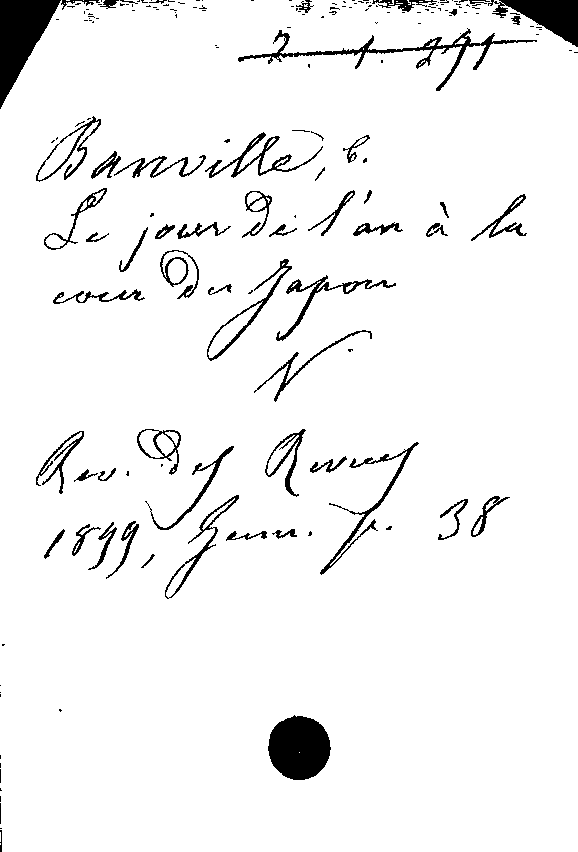 2. 1. 271
Banville, C.
Le jour de l'an à la
cour du Japon
N.
Rev. des Revues
1899, Janv. p. 38